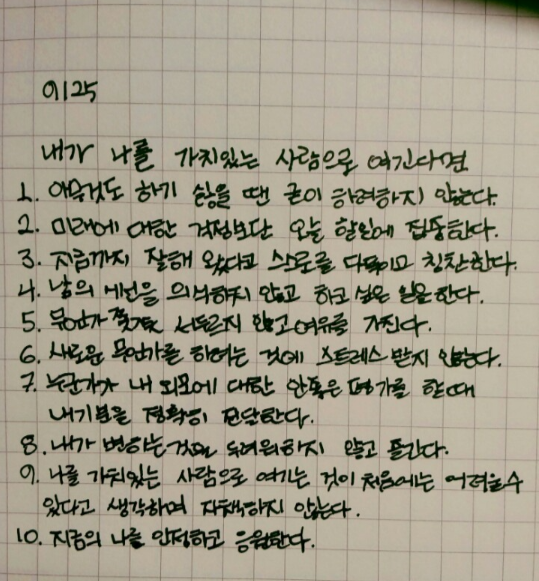 0125
내가 나를 가치있는 사람으로 여긴다면
1. 아무것도 하기 싫을 땐 굳이 하려하지 않는다.
2. 미래에 대한 걱정보단 오늘 할일에 집중한다.
3. 지금까지 잘해 왔다고 스스로를 다독이고 칭찬한다.
4. 남의 시선을 의식하지 않고 하고 싶은 일을 한다.
5. 무언가 서두르지 않고 여유를 가진다.
6. 새로운 무언가를 하려는 것에 스트레스 받지 않는다.
7. 누군가가 내 외모에 대한 안좋은 평가를 할 때
내기분을 정확히 전달한다.
8. 내가 변하는 것을 두려워하지 않고 즐긴다.
9. 나를 가치있는 사람으로 여기는 것이 처음에는 어려울수
있다고 생각하며 자책하지 않는다.
10. 지금의 나를 인정하고 응원한다.